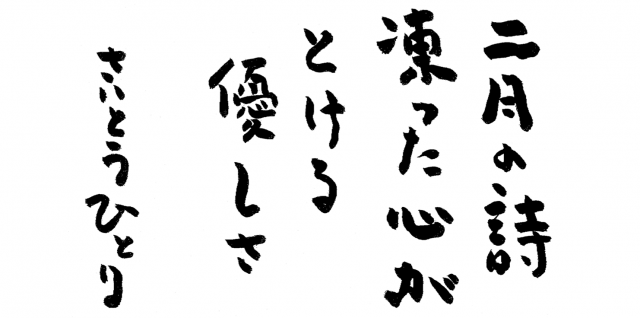 二月の詩
凍った心が
とける
優しさ
さいとうひとり